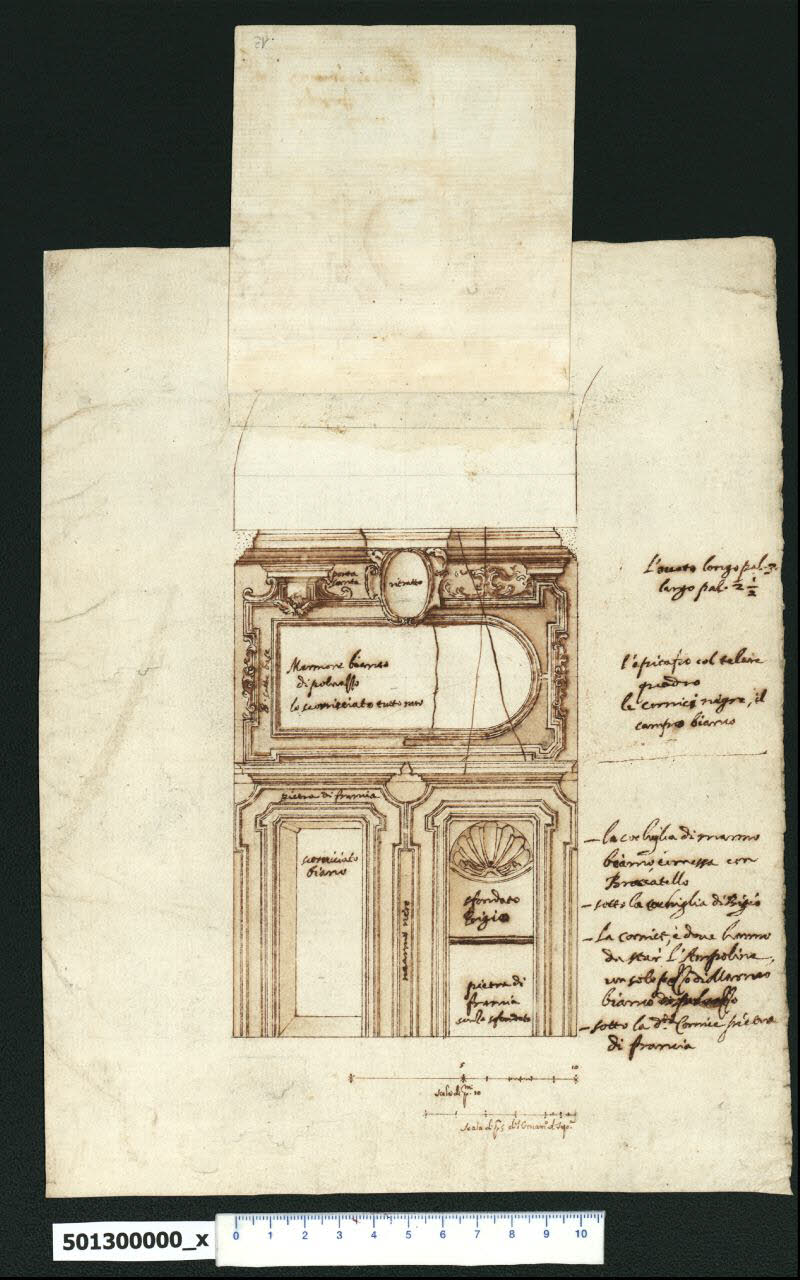 12
L'ouato longo pal. 3.
largo pal. 2 1/2
porta
santa
ritratto
Marmore bianco
di polvaffo
lo scorniciato tutto nero
l'epitafio col telare
quadro
le cornici negre, il
campo bianco
pietra di francia
scorniciato
biano
marmo nero
sfondato
Bigio
pietra di
francia
senza sfondato
– la cochiglia di marmo
bianco comessa con
Brocatello
– sotto la cochiglia di Bigio
– La cornice, è dove hanno
da star L'Ampoline,
un solo pezzo di Marmo
bianco
– sotto la d.a Cornice pietra
di francia
5
10
scala di p.mi 10
scala di p. 5
501300000_x
0 1 2 3 4 5 6 7 8 9 10